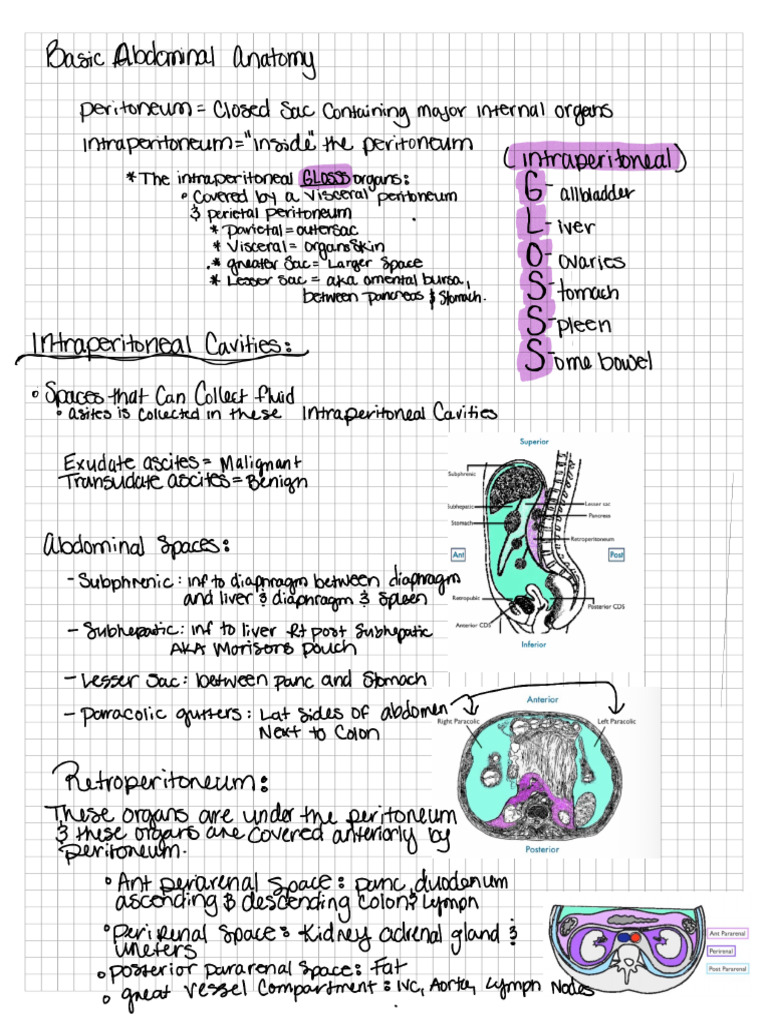 Basic Abdominal Anatomy
peritoneum = Closed Sac Containing major internal organs
intraperitoneum = "inside" the peritoneum
* The intraperitoneal GLOSSS organs:
• Covered by a visceral peritoneum
& perietal peritoneum
* Parietal = outersac
* Visceral = organs skin
* greater sac = Larger Space
* Lesser sac = aka omental bursa,
between pancreas & Stomach.
(intraperitoneal)
G-allbladder
L-iver
O-ovaries
S-tomach
S-pleen
S-ome bowel
Intraperitoneal Cavities:
• Spaces that Can Collect fluid
• asites is collected in these Intraperitoneal Cavities
Exudate ascites = Malignant
Transudate ascites = Benign
Abdominal Spaces:
- Subphrenic: inf to diaphragm between diaphragm
and liver & diaphragm & Spleen
- Subhepatic: inf to liver Rt post Subhepatic
AKA Morisons pouch
- Lesser Sac: between panc and Stomach
- Parracolic gutters: Lat sides of abdomen
Next to Colon
Superior
Subphrenic
Subhepatic
Stomach
Lesser sac
Pancreas
Retroperitoneum
Ant
Post
Retropubic
Anterior CDS
Posterior CDS
Inferior
Anterior
Right Paracolic
Left Paracolic
Posterior
Retroperitoneum:
These organs are under the peritoneum
& these organs are covered anteriorly by
peritoneum.
• Ant perarenal space: panc, duodenum
ascending & descending colon & Lymph
• Perirenal Space: Kidney adrenal gland &
ureters
• posterior pararenal Space: Fat
• great vessel Compartment: IVC, Aorta, Lymph Nodes
Ant Pararenal
Perirenal
Post Pararenal